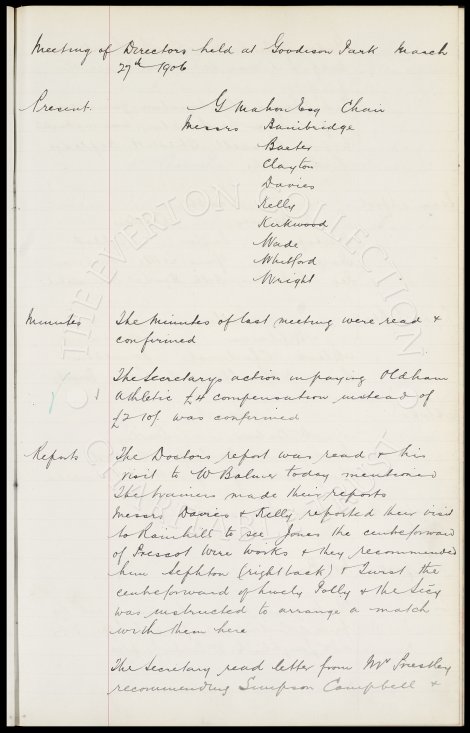 Meeting of Directors held at Goodison Park March
27th 1906
Present. G Mahon Esq Chair
Messrs Bainbridge
Baxter
Clayton
Davies
Kelly
Kirkwood
Wade
Whitford
Wright
Minutes The Minutes of last meeting were read &
confirmed
1 The Secretarys action in paying Oldham
Athletic £4 compensation instead of
£2 10/- was confirmed
Reports The Doctors report was read & his
visit to W Balmer today mentioned
The trainers made their reports
Messrs Davies & Kelly reported their visit
to Rainhill to see Jones the centreforward
of Prescot Wire Works & they recommended
him Sephton (right back) & the
centreforward of Lively Polly & the Secy
was instructed to arrange a match
with them here
The Secretary read letter from Mr Priestley
recommending Simpson Campbell &
THE EVERTON COLLECTION